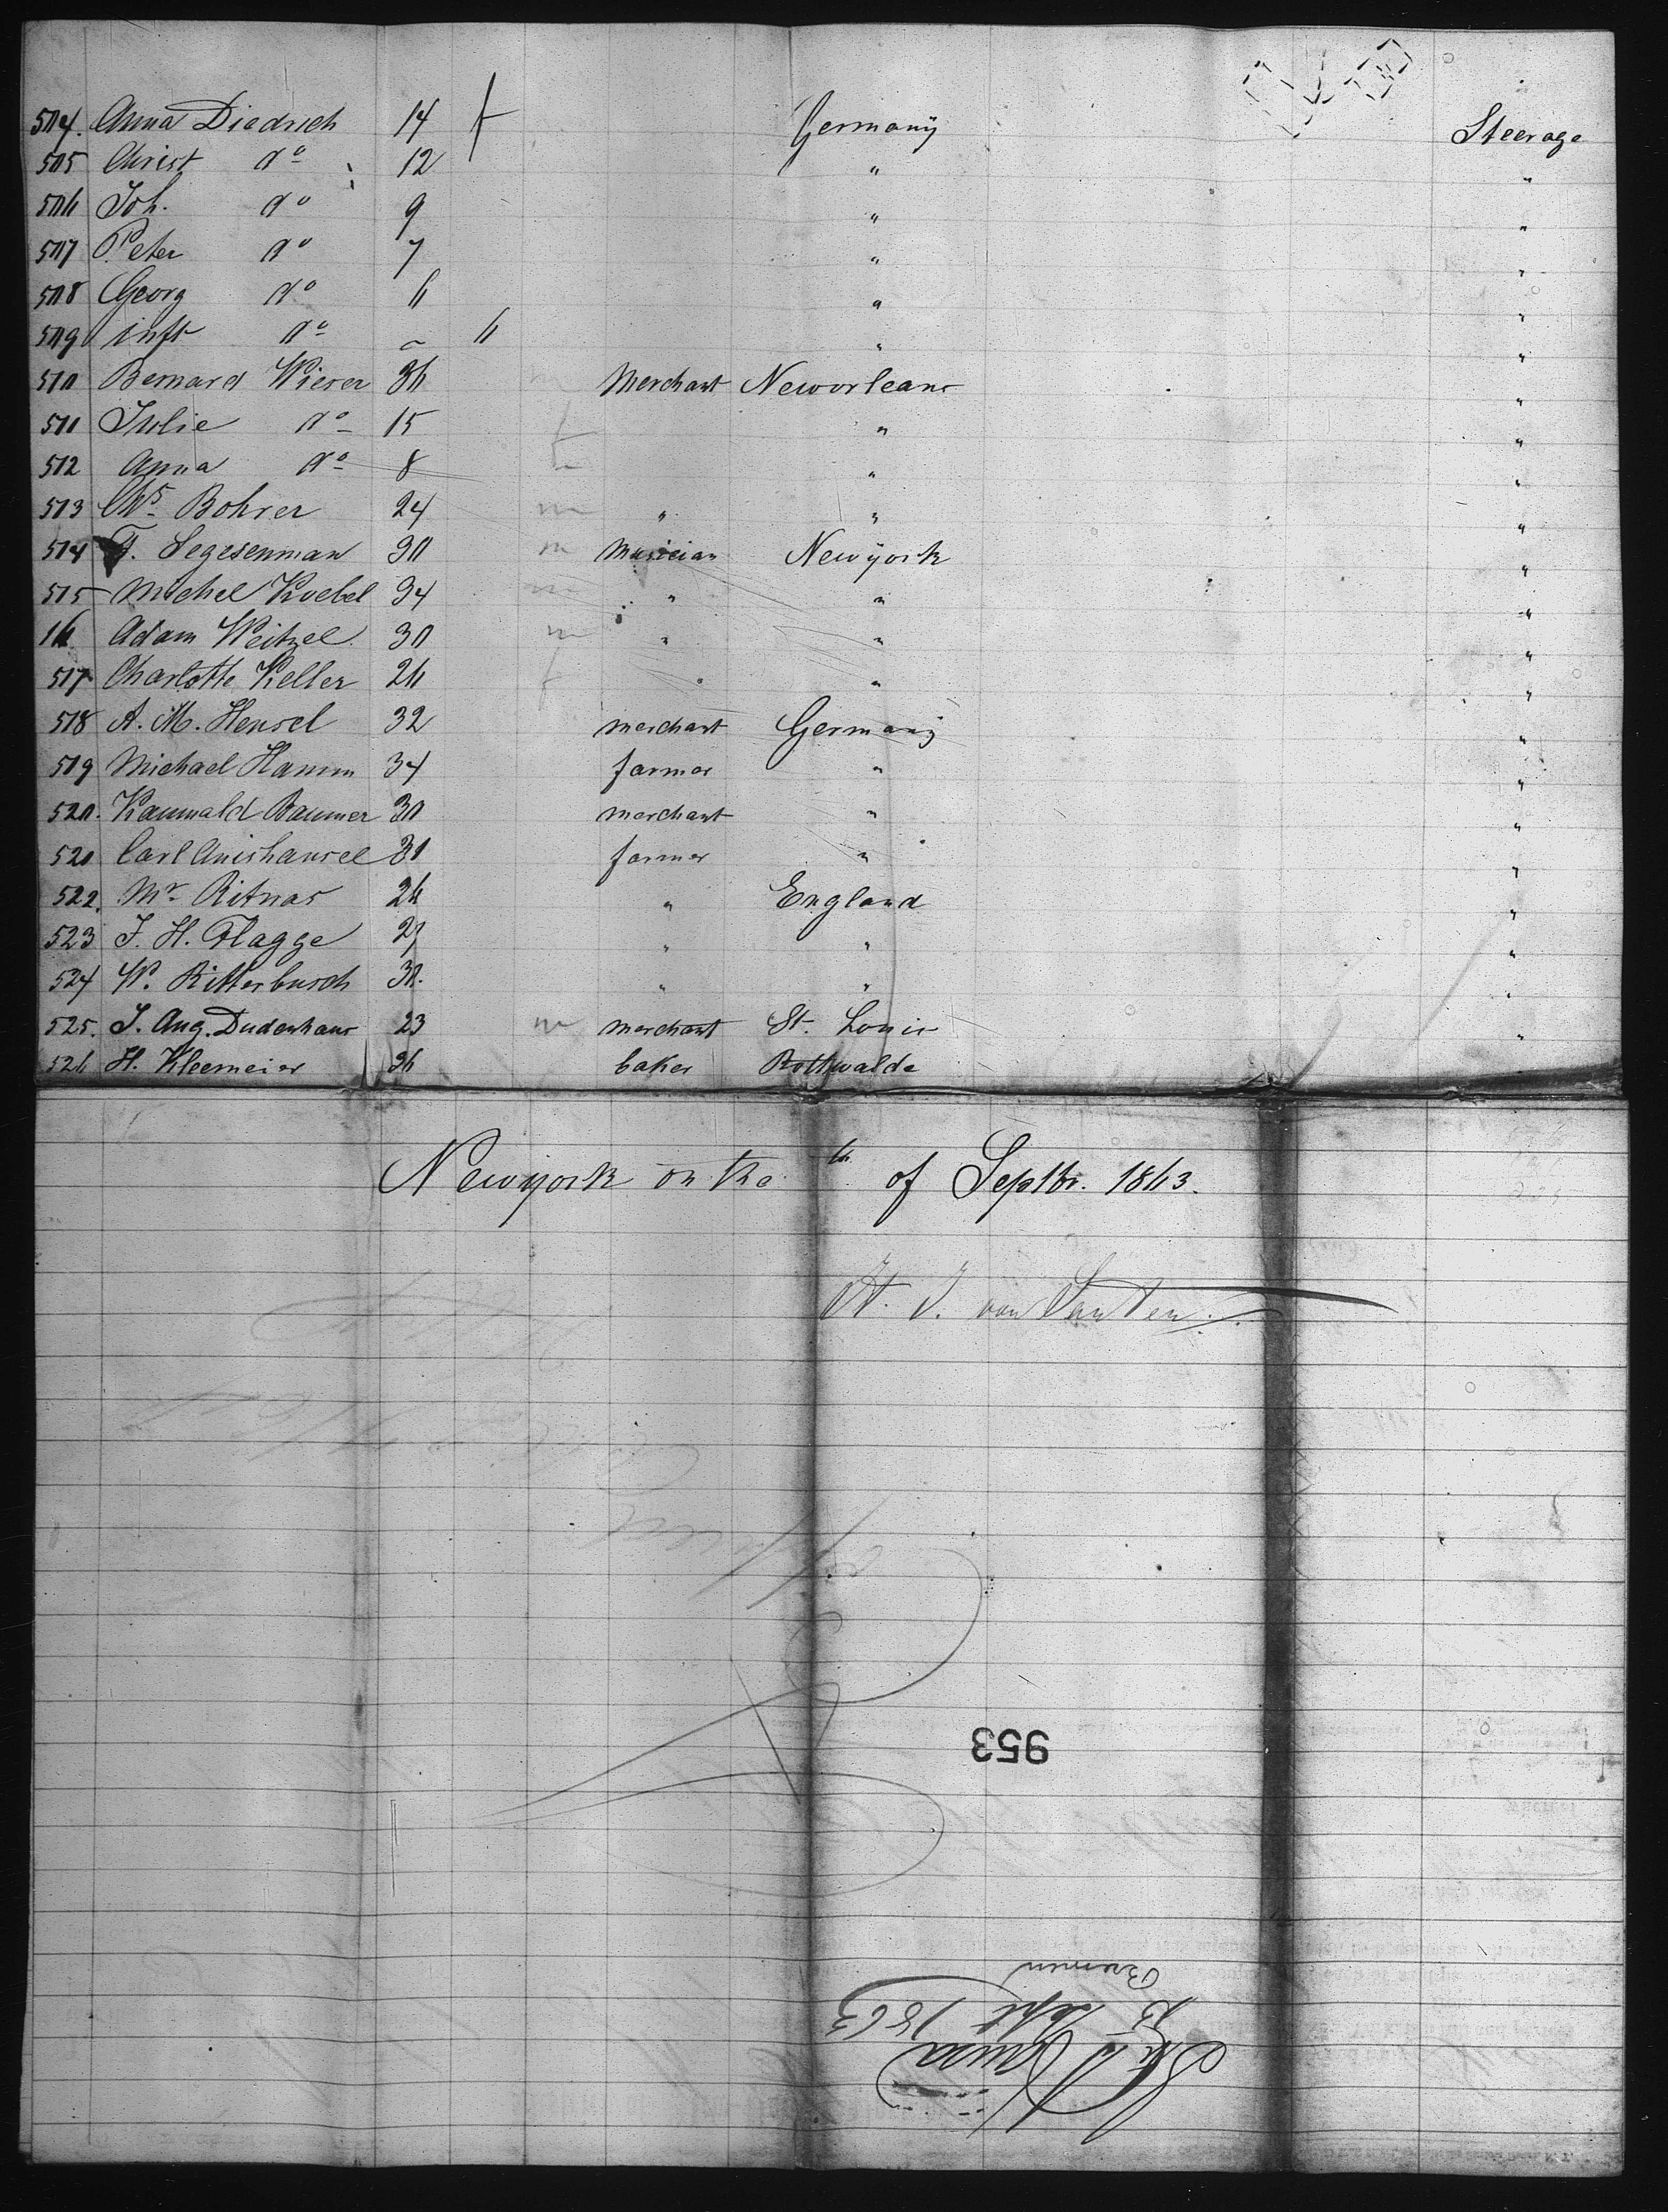 504. Anna Diedrich 14 f Germany Steerage
505 Christ do 12 " "
506 Joh. do 9 " "
507 Peter do 7 " "
508 Georg do 6 " "
509 inft do " 6 " "
510 Bernard Wieser 36 m Merchant Neworleans "
511 Julie do 15 f " "
512 Anna do 8 f " "
513 Chs Bohrer 24 m " " "
514 F. Segesenman 30 m Musician Newyork "
515 Michel Koebel 34 m " " "
16 Adam Weitzel 30 m " " "
517 Charlotte Keller 26 f " " "
518 A. M. Hensel 32 merchant Germany "
519 Michael Hamm 34 farmer " "
520. Kaunwald Baumer 30 merchant " "
520 Carl Anishansel 30 farmer " "
522. Mr Ritnas 26 " England "
523 J. H. Flagge 27 " " "
524 W. Ritterbusch 30. " " "
525. J. Aug. Dudenhaus 23 m merchant St. Louis "
526 H. Kleemeier 36 baker Rothwalde
Newyork on the th of Septbr. 1863.
H. J. von Santen
953
Bremen
Sept 1863